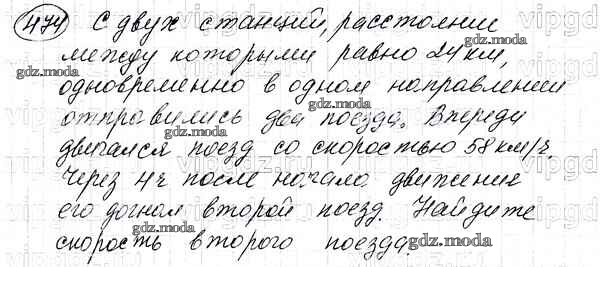 474 С двух станций, расстояние
между которыми равно 24 км,
одновременно в одном направлении
отправились два поезда. Впереди
двигался поезд со скоростью 58 км/ч.
Через 4 ч после начала движения
его догнал второй поезд. Найдите
скорость второго поезда.
gdz.moda
gdz.moda
gdz.moda
gdz.moda
gdz.moda
gdz.moda
gdz.moda
gdz.moda